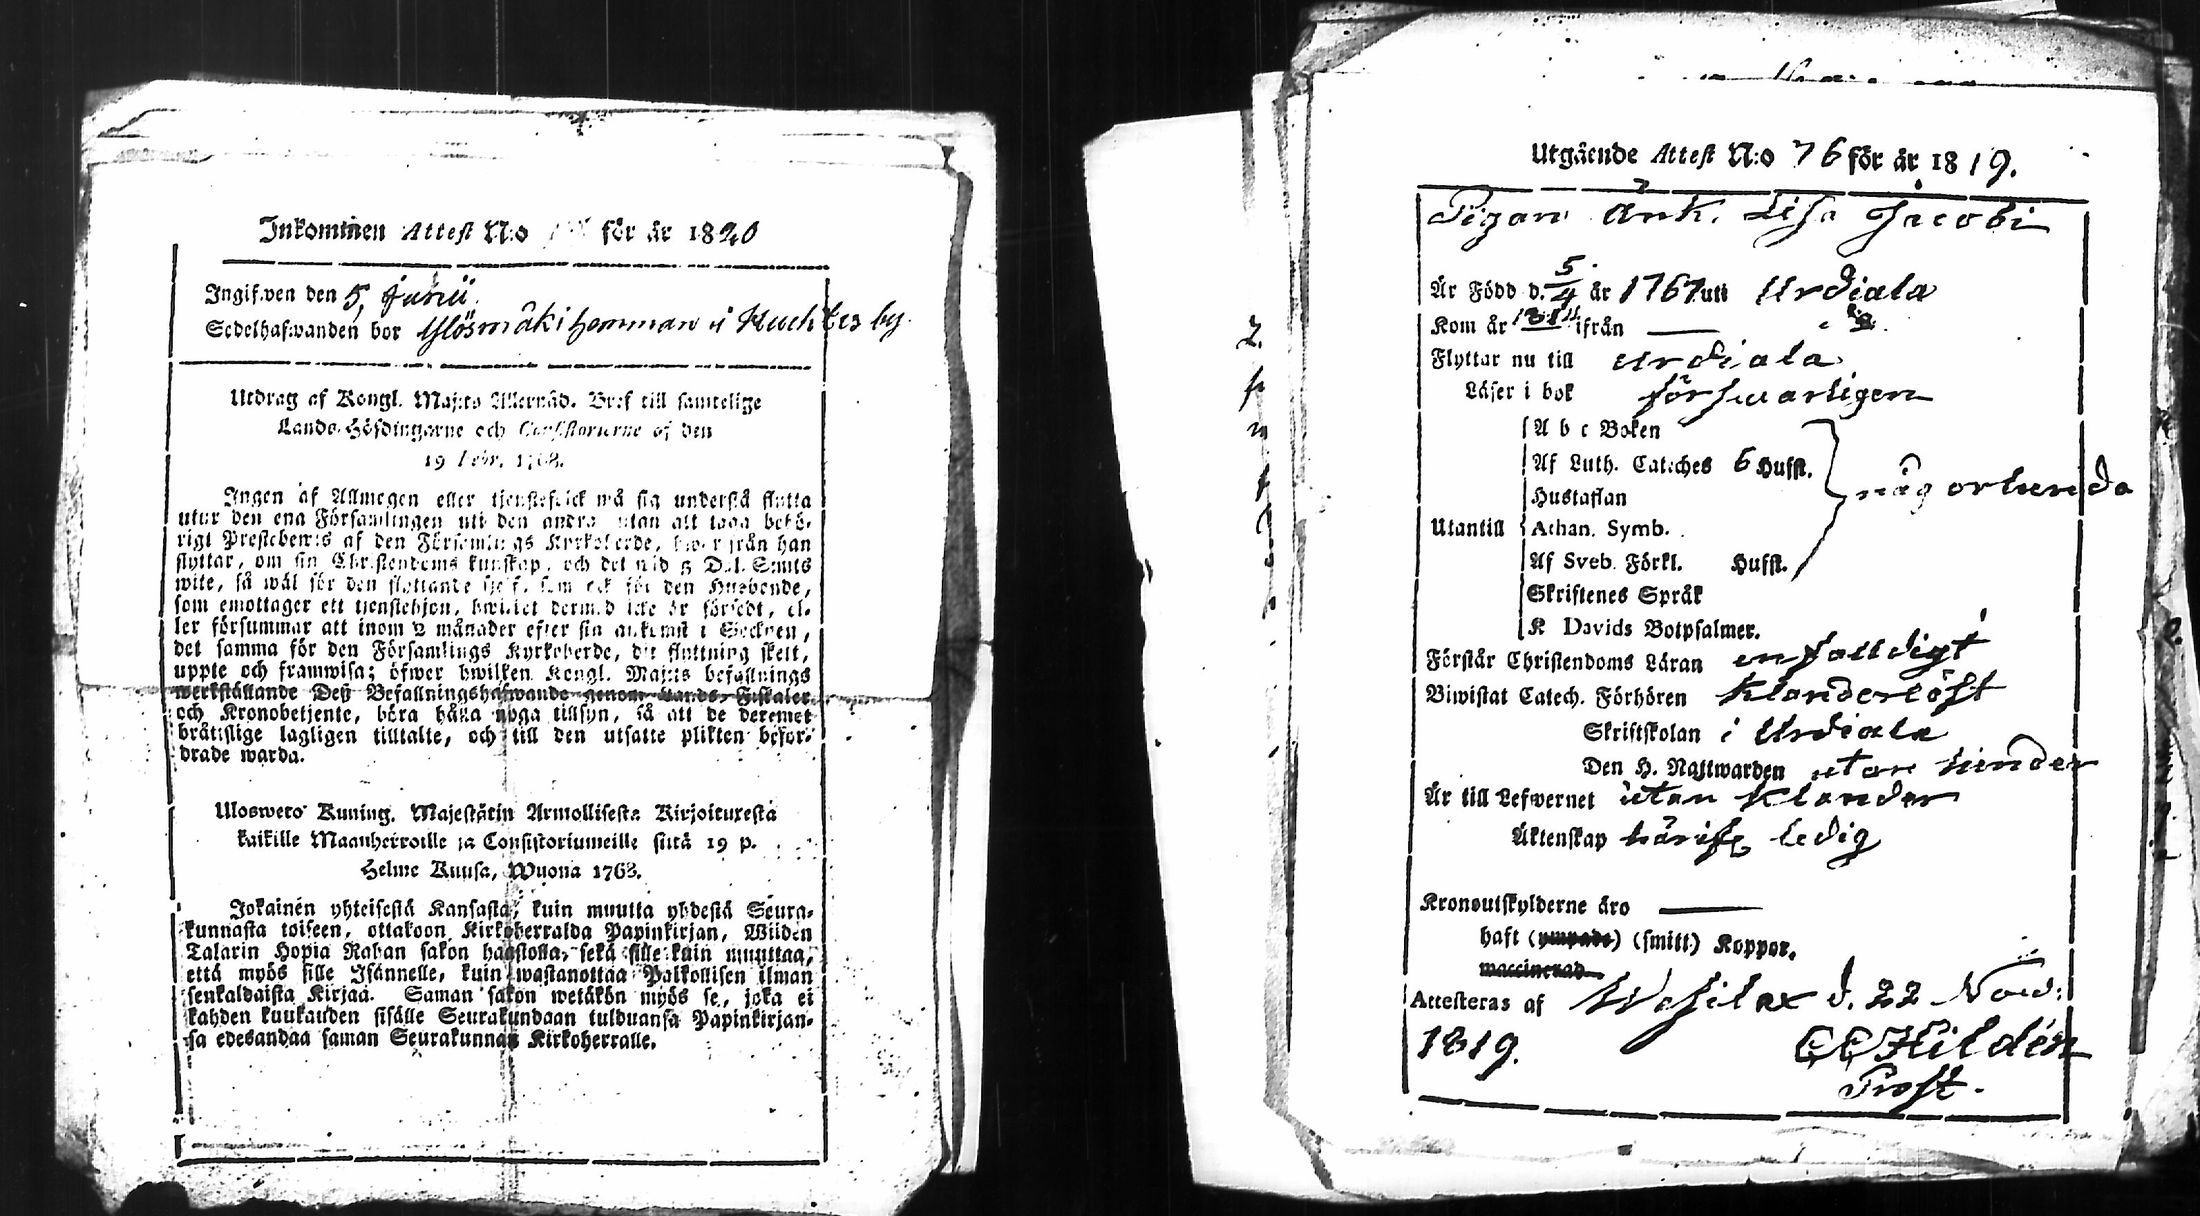 Inkommen Attest N:o för år 1820
Ingifwen den 5 Junii
Sedelhafwanden bor Ylösmäki hemman i Huchtis by.
Utdrag af Kongl. Maj:ts Allernåd. Bref till samtelige
Lands-Höfdingarne och Consistorierne af den
19 Febr. 1768.
Ingen af Allmogen eller tjenstefolck må sig understå flytta
utur den ena Församlingen uti den andra utan att taga behö-
rigt Prestebewis af den Församlings Kyrkoherde, hwarifrån han
flyttar, om sin Christendoms kunskap, och det wid 5 Dal. S:mts
wite, så wäl för den flyttande sjelf, som ock för den Husbonde,
som emottager ett tjenstehjon, hwilcket dermed icke är försedt, el-
ler försummar att inom 2 månader efter sin ankomst i Socknen,
det samma för den Församlings Kyrkoherde, dit flyttning skett,
uppte och framwisa; öfwer hwilken Kongl. Maj:ts befallnings
werkställande Deß Befallningshafwande genom Lands-Fiskaler
och Kronobetjente, böra hålla noga tillsyn, så att de deremot
bråttslige lagligen tilltalte, och till den utsatte plikten befor-
drade warda.
Uloswetö Kuning. Majestätin Armollisesta Kirjoituxesta
kaikille Maanherroille ja Consistoriumeille siitä 19 p.
Helme Kuusa, Wuona 1768.
Jokainen yhteisestä Kansasta, kuin muutta yhdestä Seura-
kunnasta toiseen, ottakoon Kirkoherralda Papinkirjan, Wiiden
Talarin Hopia Rahan sakon haastolla, sekä sille kuin muuttaa,
että myös sille Isännelle, kuin wastanottaa Palkollisen ilman
senkaldaista Kirjaa. Saman sakon wetäkön myös se, joka ei
kahden kuukauden sisälle Seurakundaan tulduansa Papinkirjan-
sa edesandaa saman Seurakunnan Kirkoherralle.
Utgående Attest N:o 76 för år 1819.
Pigan Änk. Lisa Jacobi
Är Född d. 5/4 år 1767 uti Urdiala
Kom år 1814 ifrån
Flyttar nu till Urdiala
Läser i bok försvarligen
A b c Boken
Af Luth. Cateches 6 Hufst.
Hustaflan någorlunda
Utantill Athan. Symb.
Af Sveb. Förkl. Hufst.
Skriftenes Språk
K Davids Botpsalmer.
Förstår Christendoms Läran enfalldigt
Biwistat Catech. Förhören Klanderlöst
Skriftskolan i Urdiala
Den H. Nattwarden utan hinder
Är till Lefwernet utan klander
Äktenskap härifr. ledig
Kronoutskylderne äro
haft (ympade) (smitt) Koppor,
waccinerad
Attesteras af Wesilax d. 22 Nov:
1819. CC Hildén
Prost.